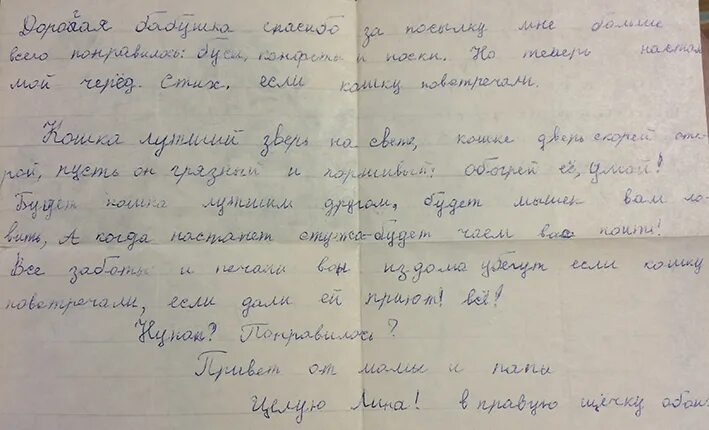 Дорогая бабушка спасибо за посылку мне больше
всего понравилось: бусы, конфеты и носки. Но теперь настал
мой черёд. Стих, если кошку повстречали.
Кошка лутший зверь на свете, кошке дверь скорей отк
рой, пусть он грязный и паршивый: обогрей её, умой!
Будет кошка лутшим другом, будет мышек вам ло
вить, А когда настанет стужа-будет чаем вас поить!
Все заботы и печали вон из дома убегут если кошку
повстречали, если дали ей приют! всё!
Ну как? Понравилось?
Привет от мамы и папы
Целую Лина! в правую щёчку